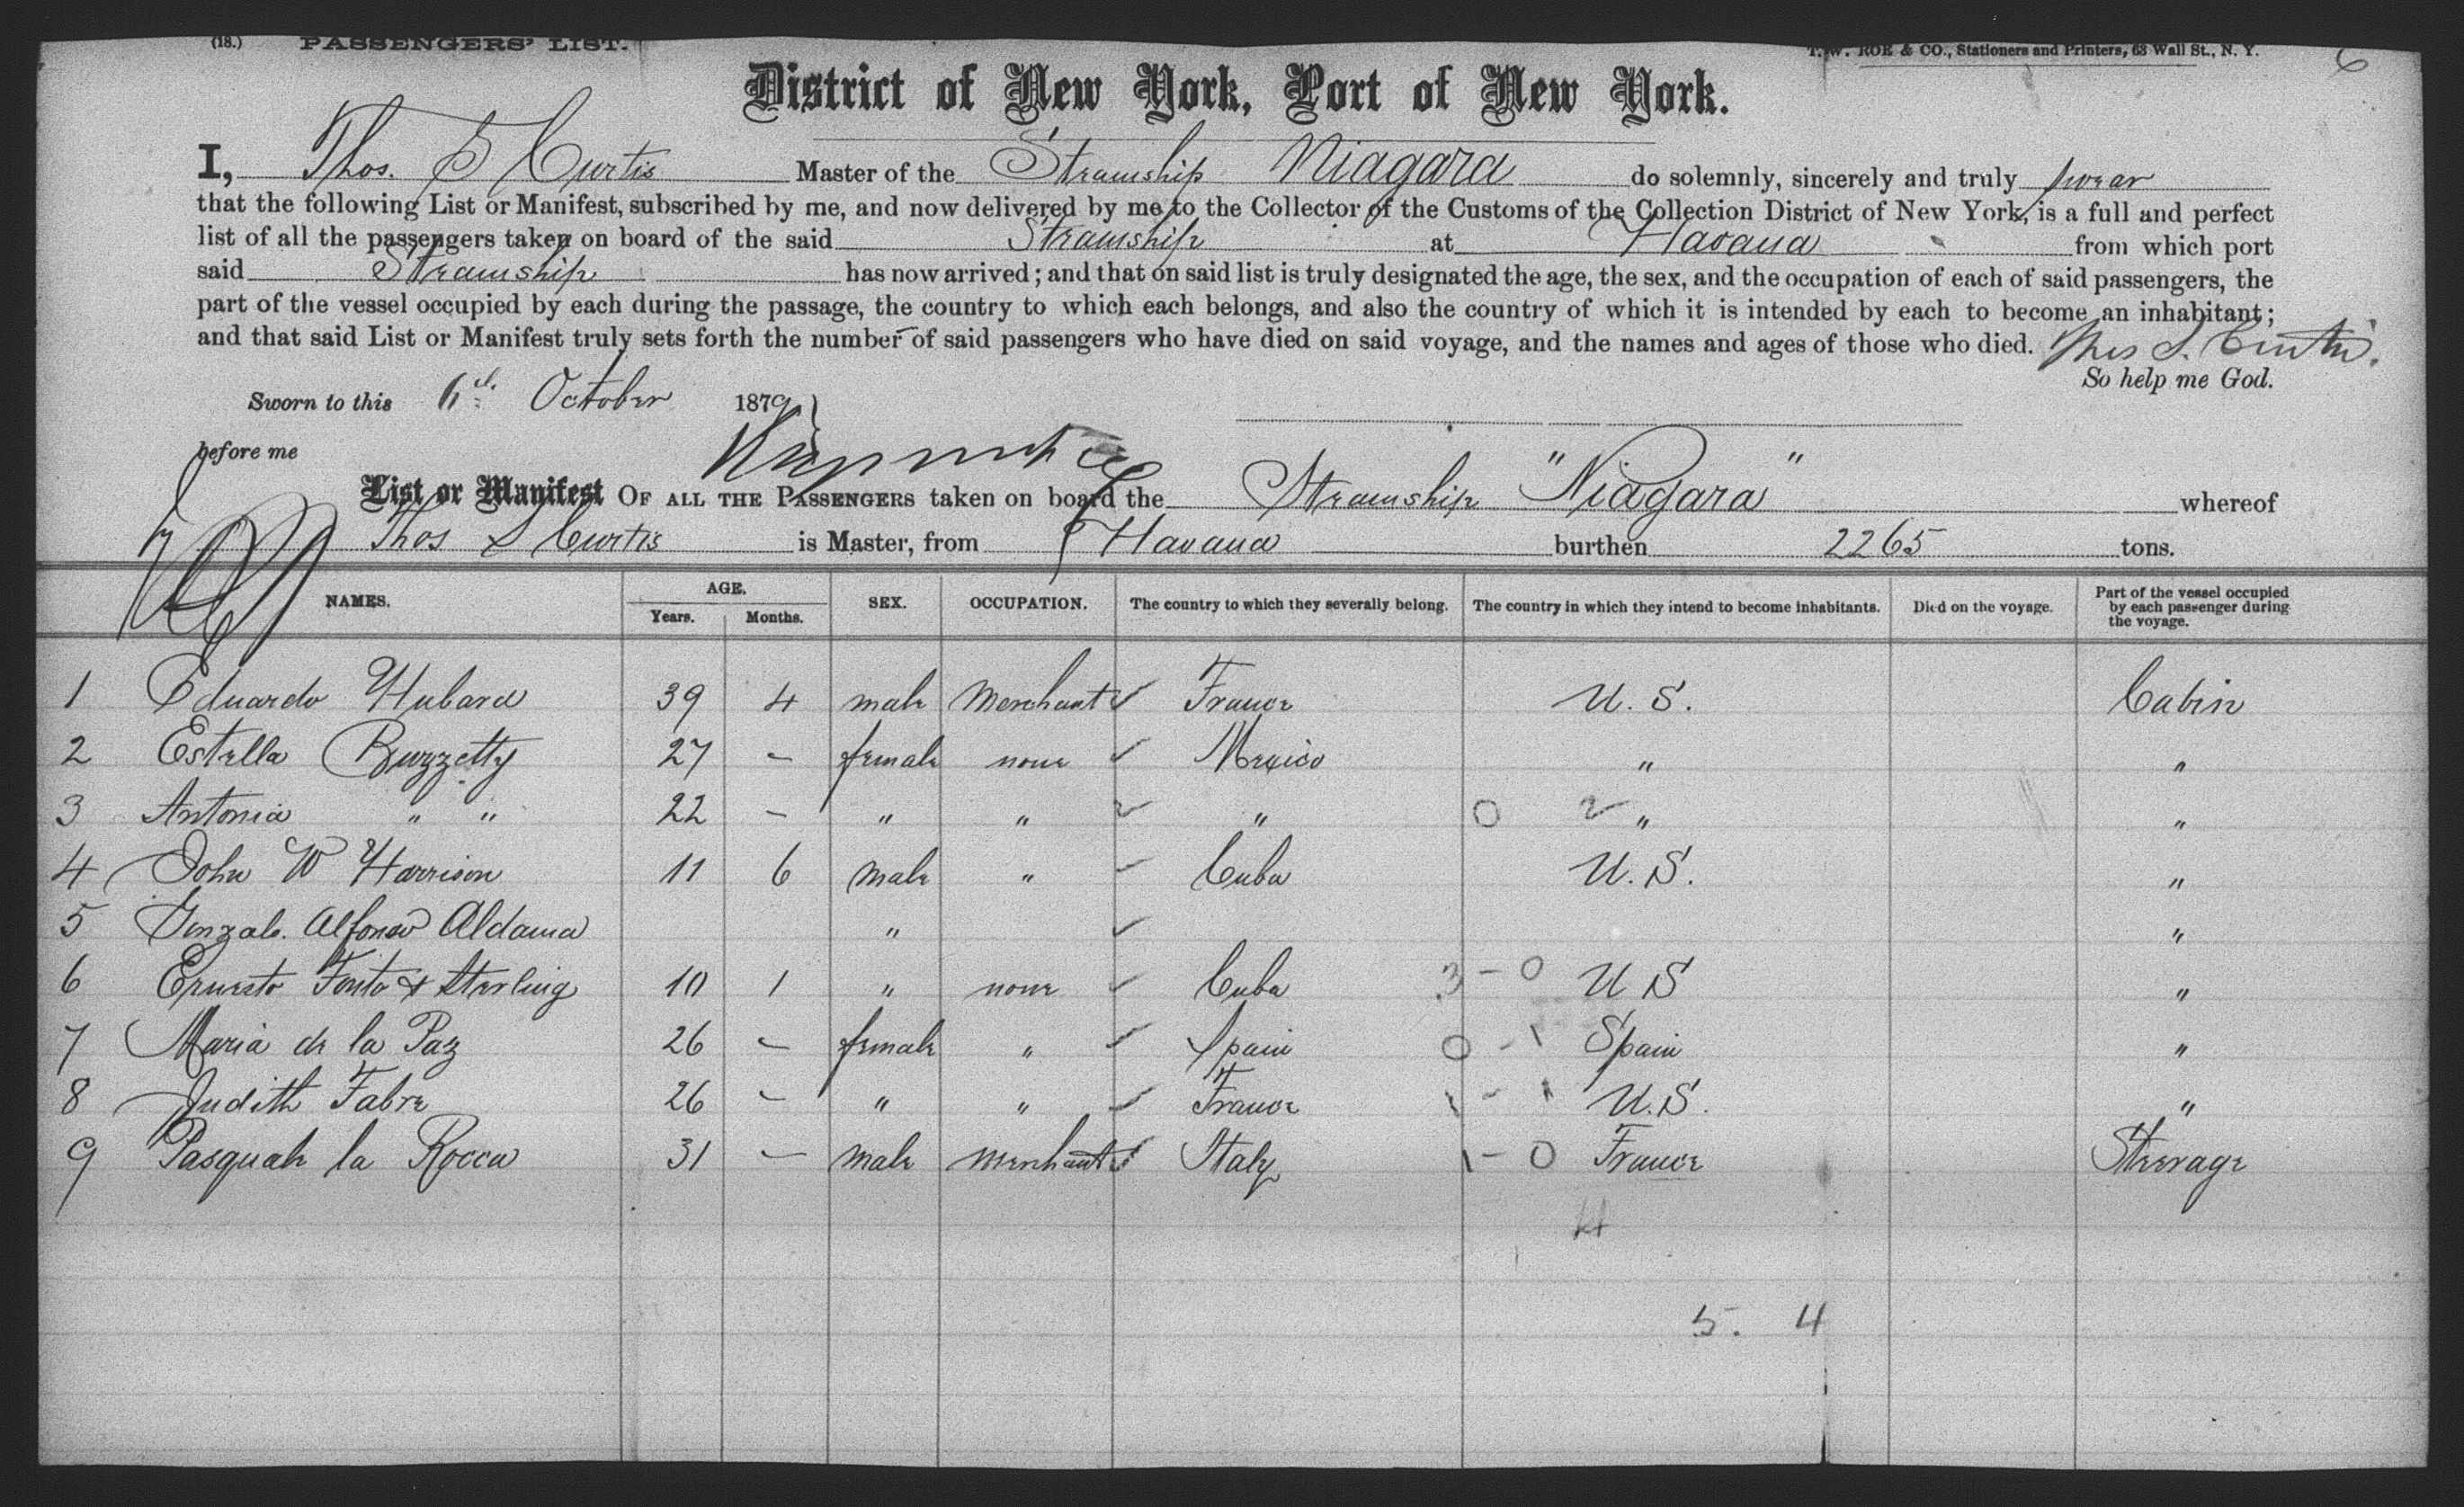 (18.) PASSENGERS' LIST. T. W. ROE & CO., Stationers and Printers, 63 Wall St., N. Y. 6
District of New York, Port of New York.
I, Thos. S Curtis Master of the Steamship Niagara do solemnly, sincerely and truly swear
that the following List or Manifest, subscribed by me, and now delivered by me to the Collector of the Customs of the Collection District of New York, is a full and perfect
list of all the passengers taken on board of the said Steamship at Havana from which port
said Steamship has now arrived; and that on said list is truly designated the age, the sex, and the occupation of each of said passengers, the
part of the vessel occupied by each during the passage, the country to which each belongs, and also the country of which it is intended by each to become an inhabitant;
and that said List or Manifest truly sets forth the number of said passengers who have died on said voyage, and the names and ages of those who died. Thos S. Curtis.
So help me God.
Sworn to this 6th October 1879
before me
List or Manifest OF ALL THE PASSENGERS taken on board the Steamship "Niagara" whereof
Thos S Curtis is Master, from Havana burthen 2265 tons.
NAMES. AGE. Years. Months. SEX. OCCUPATION. The country to which they severally belong. The country in which they intend to become inhabitants. Died on the voyage. Part of the vessel occupied by each passenger during the voyage.
1 Eduardo Hubard 39 4 male Merchant France U. S. Cabin
2 Estella Buzzetty 27 - female none Mexico " "
3 Antonia " " 22 - " " " 0 2 " "
4 John W Harrison 11 6 male " Cuba U. S. "
5 Gonzalo Alfonso Aldama " "
6 Ernesto Fonto & Sterling 10 1 " none Cuba 3 - 0 U S "
7 Maria de la Paz 26 - female " Spain 0 - 1 Spain "
8 Judith Fabre 26 - " " France 1 - 1 U. S. "
9 Pasquale la Rocca 31 - male merchant Italy 1 - 0 France Steerage
5. 4